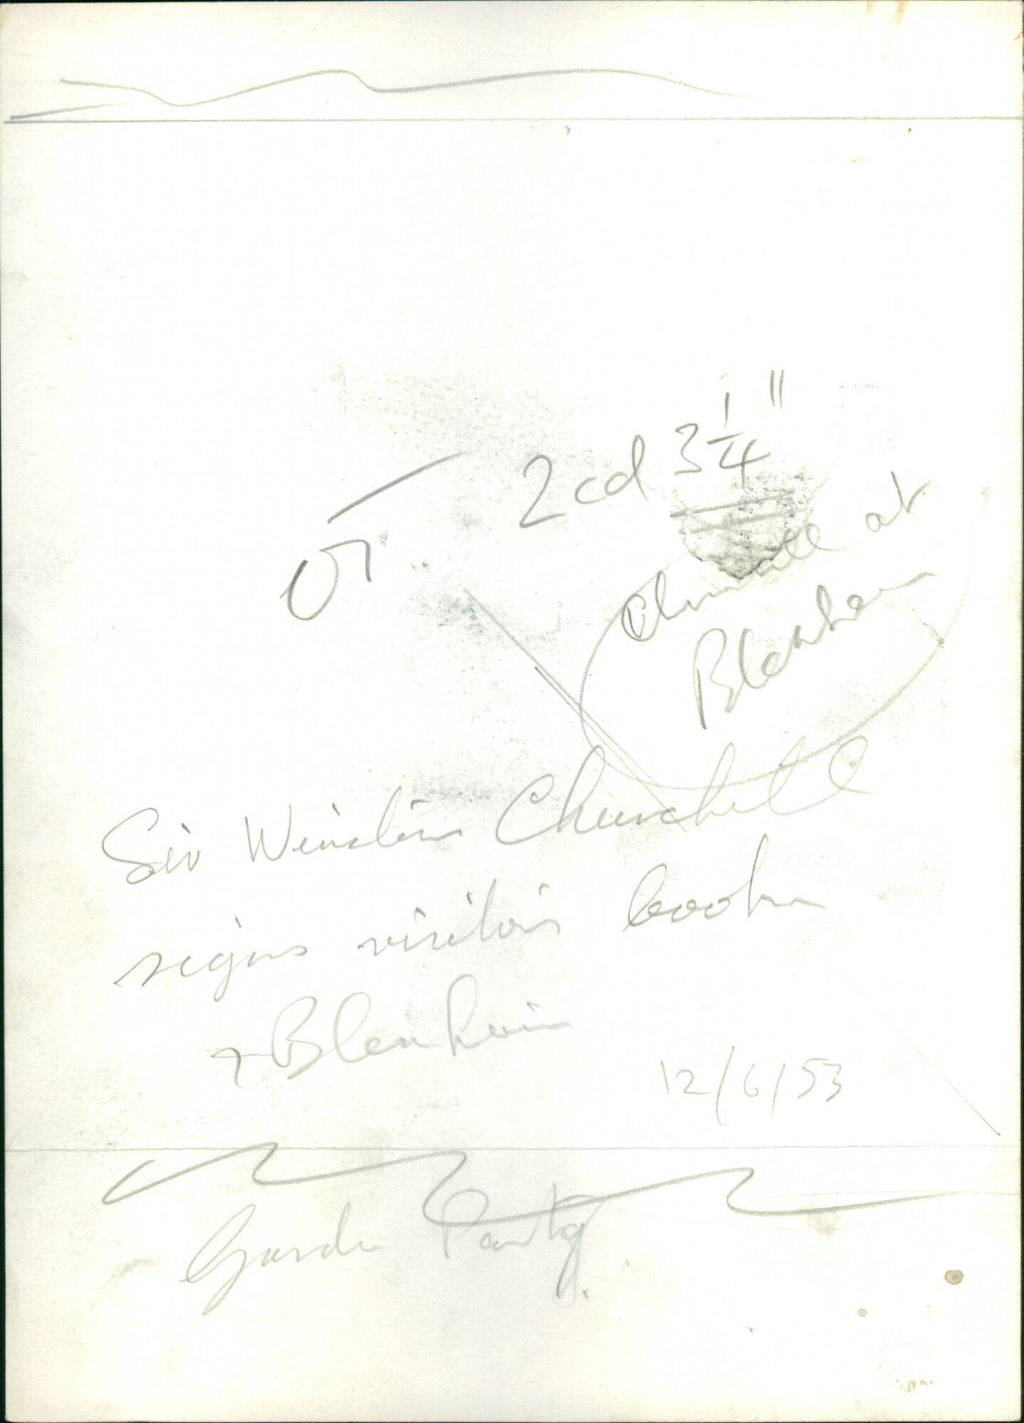 2 cd 3 1/4"
at
Blenheim
Sir Winston Churchill
signs visitors book
Blenheim
12/6/53
Garden Party.